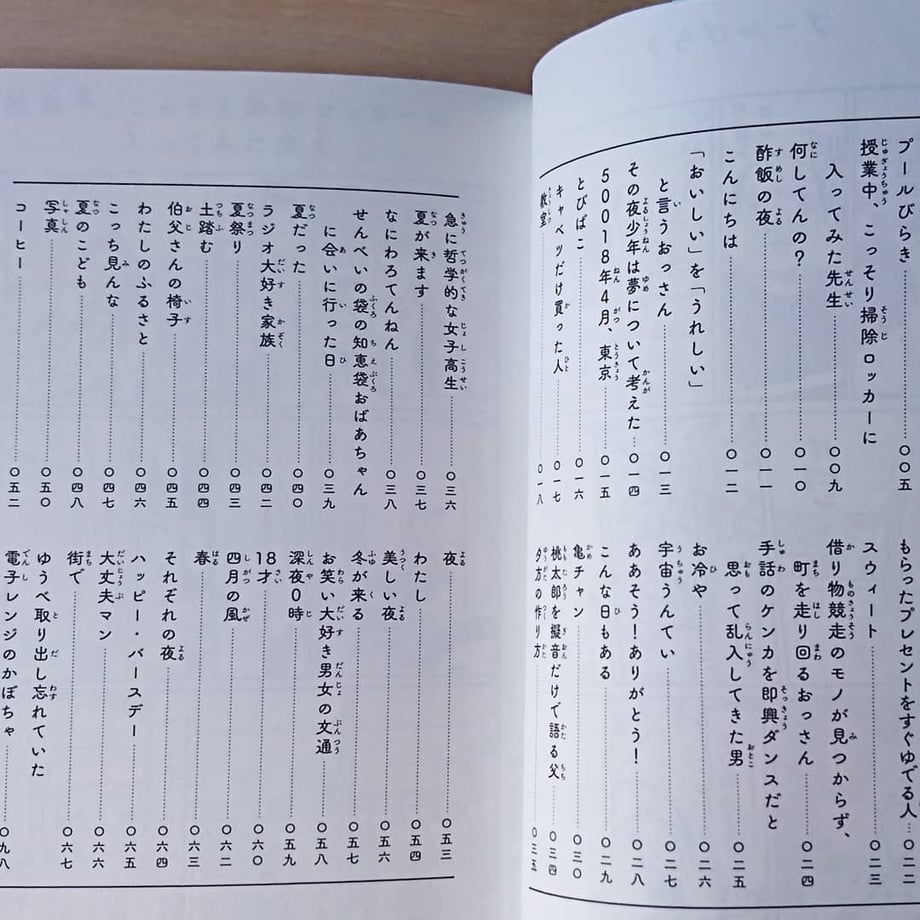 プールびらき……〇〇五
授業中、こっそり掃除ロッカーに
入ってみた先生……〇〇九
何してんの?……〇一〇
酢飯の夜……〇一一
こんにちは……〇一二
「おいしい」を「うれしい」
と言うおっさん……〇一三
その夜少年は夢について考えた……〇一四
50018年4月、東京……〇一五
とびばこ……〇一六
キャベツだけ買った人……〇一七
教室……〇一八
もらったプレゼントをすぐゆでる人……〇二二
スウィート……〇二三
借り物競走のモノが見つからず、
町を走り回るおっさん……〇二四
手話のケンカを即興ダンスだと
思って乱入してきた男……〇二五
お冷や……〇二六
宇宙うんてい……〇二七
ああそう!ありがとう!……〇二八
こんな日もある……〇二九
亀チャン……〇三〇
桃太郎を擬音だけで語る父……〇三四
夕方の作り方……〇三五
急に哲学的な女子高生……〇三六
夏が来ます……〇三七
なにわろてんねん……〇三八
せんべいの袋の知恵袋おばあちゃん
に会いに行った日……〇三九
夏だった……〇四〇
ラジオ大好き家族……〇四二
夏祭り……〇四三
土踏む……〇四四
伯父さんの椅子……〇四五
わたしのふるさと……〇四六
こっち見んな……〇四七
夏のこども……〇四八
写真……〇五〇
コーヒー……〇五二
夜……〇五三
わたし……〇五四
美しい夜……〇五六
冬が来る……〇五七
お笑い大好き男女の文通……〇五八
深夜0時……〇五九
18才……〇六〇
四月の風……〇六二
春……〇六三
それぞれの夜……〇六四
ハッピー・バースデー……〇六五
大丈夫マン……〇六六
街で……〇六七
ゆうべ取り出し忘れていた
電子レンジのかぼちゃ……〇九八